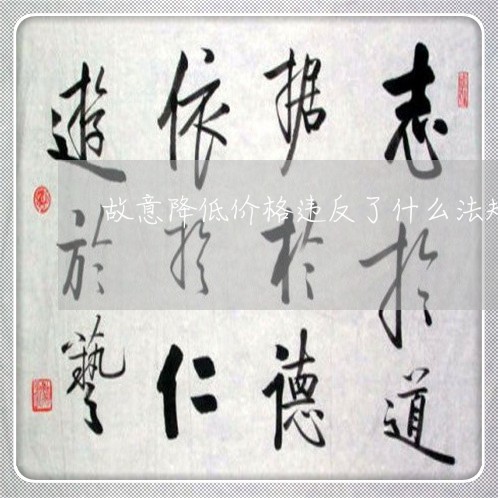 志於道
据於德
依於仁
遊於藝
故意降低价格违反了什么法